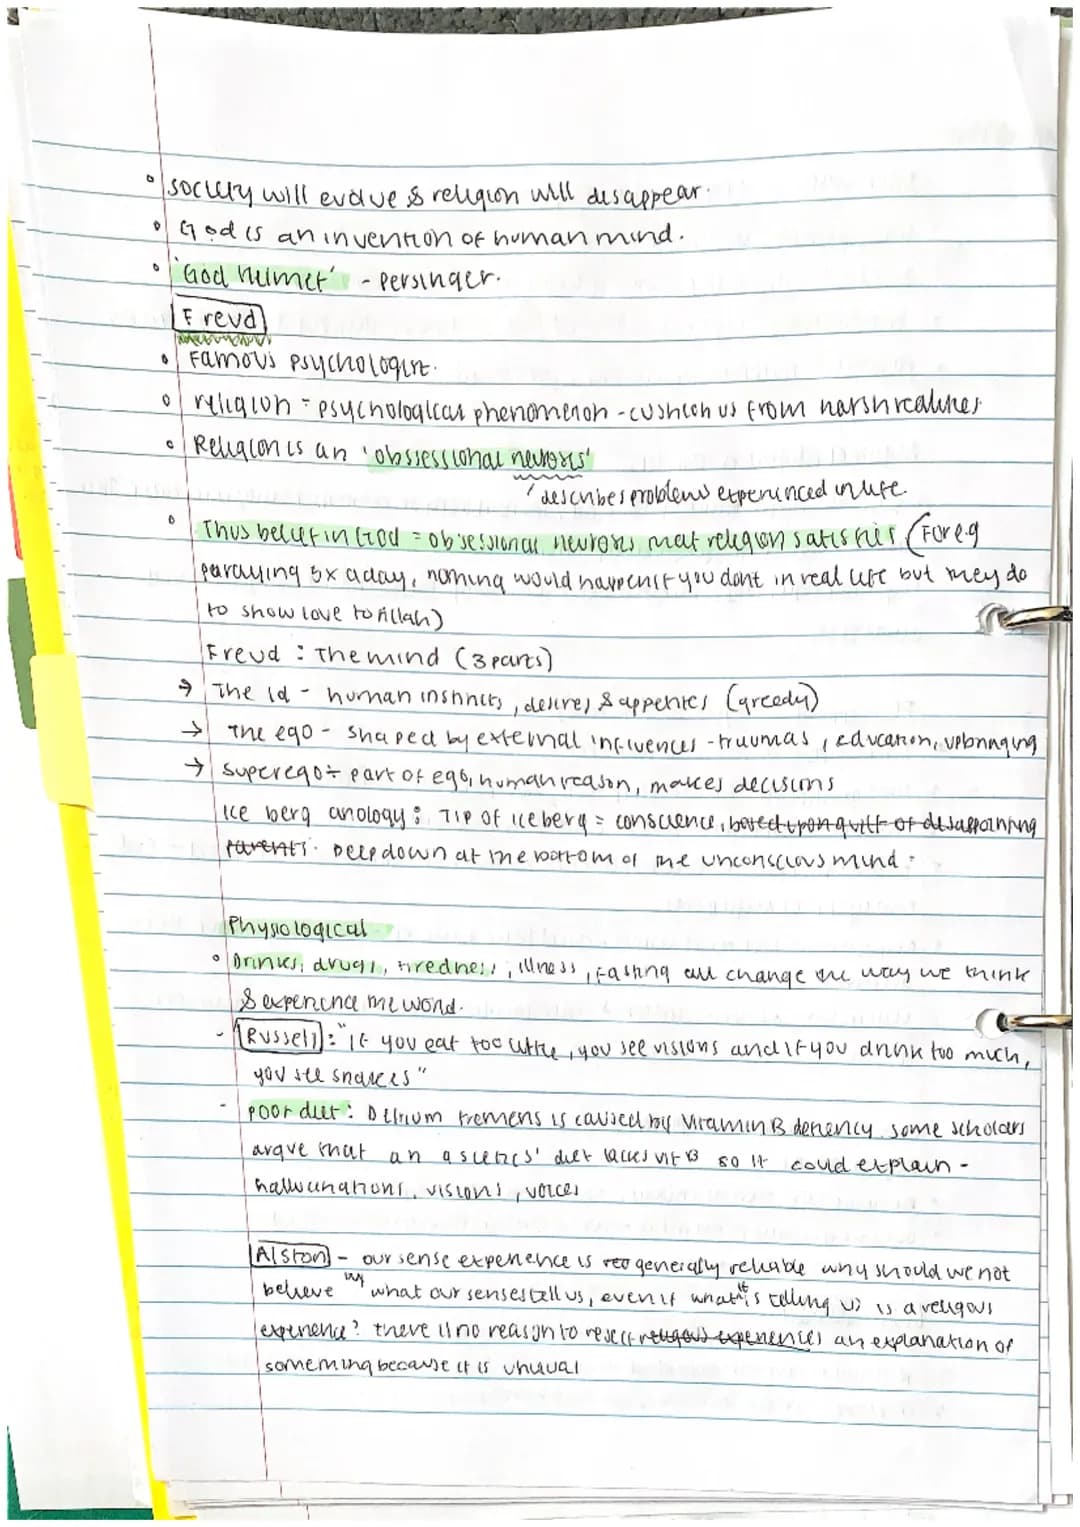 ° society will evolve & religion will disappear.
° God is an invention of human mind.
° 'God helmet' - Persinger.
Freud
• Famous psychologist.
° religion = psychological phenomenon - cushion us from harsh realities
° Religion is an 'obssessional neurosis'
describes problems experienced in life.
° Thus belief in God = obsessional neuroses that religion satisfies (For e.g
paraying 5x a day, nothing would happen if you dont in real life but they do
to show love to Allah)
Freud : The mind (3 parts)
→ The Id - human instincts, desires & appetites (greedy)
→ The ego - shaped by external influences - traumas, education, upbringing
→ Superego ÷ part of ego, human reason, makes decisions
Ice berg anology : Tip of iceberg = conscience, based upon guilt of dissapointing
parents. Deep down at the bottom of the unconscious mind :
Physiological
° Drinks, drugs, tiredness, illness, fasting all change the way we think
& experience the world.
- Russell : "If you eat too little, you see visions and if you drink too much,
you see snakes"
- Poor diet : Delirium tremens is caused by Vitamin B deficiency some scholars
argue that an ascetics' diet lacks vit B so it could explain -
hallucinations, visions, voices
Alston - our sense experience is generally reliable why should we not
believe in what our senses tell us, even if what it is telling us is a religous
experience? there is no reason to reject religous experiences an explanation of
something because it is unusual